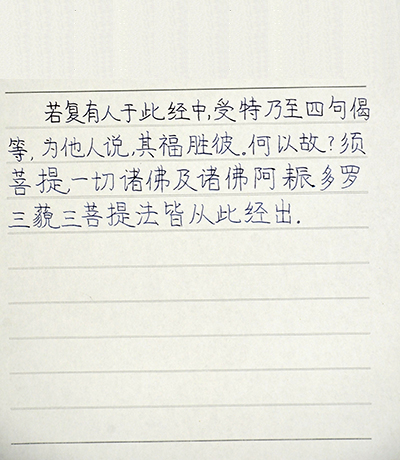 若复有人于此经中,受特乃至四句偈
等,为他人说,其福胜彼.何以故?须
菩提,一切诸佛及诸佛阿耨多罗
三藐三菩提法皆从此经出.